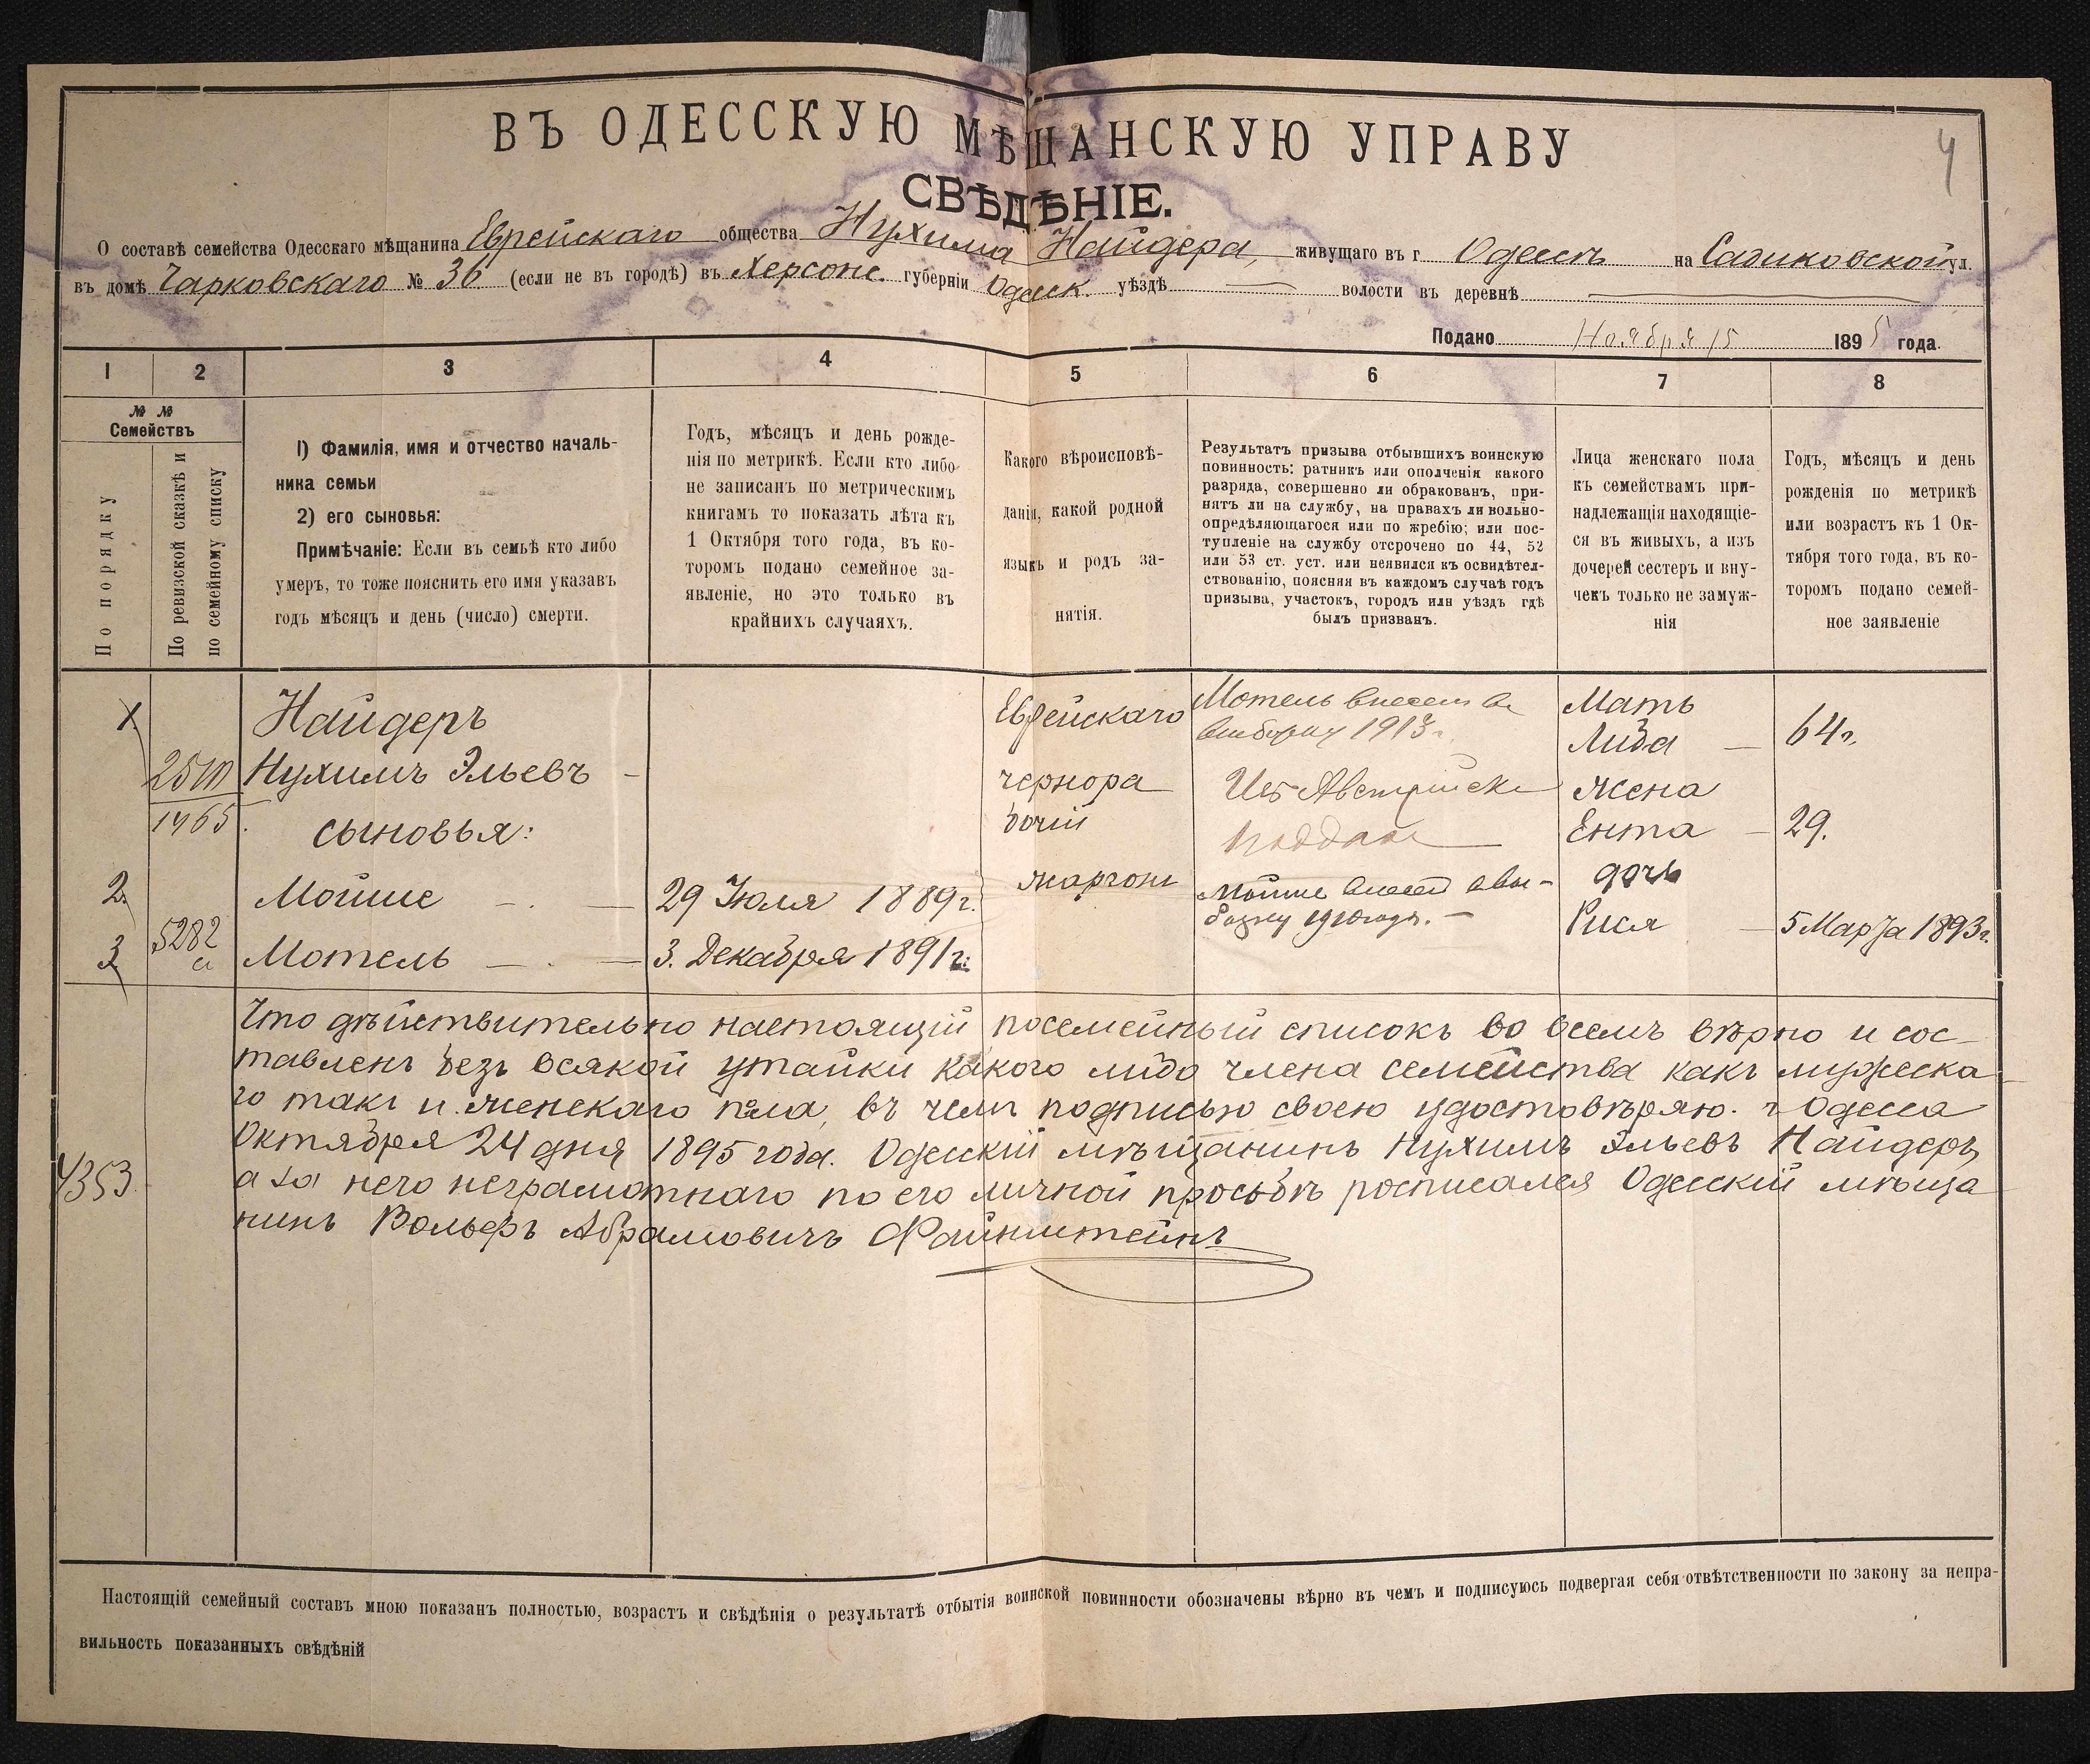 ВЪ ОДЕССКУЮ МѢЩАНСКУЮ УПРАВУ
4
СВѢДѢНІЕ.
О составѣ семейства Одесскаго мѣщанина Еврейскаго общества Нухима Найдера, живущаго въ г. Одессѣ на Садиковской ул.
въ домѣ Чарковскаго № 36 (если не въ городѣ) въ Херсонс. губерніи Одесск. уѣздѣ волости въ деревнѣ
Подано Ноября 15 1895 года.
1 2 3 4 5 6 7 8
№ № Семействъ
По порядку
По ревизской сказкѣ и
по семейному списку
1) Фамилія, имя и отчество началь-
ника семьи
2) его сыновья:
Примѣчаніе: Если въ семьѣ кто либо
умеръ, то тоже пояснить его имя указавъ
годъ мѣсяцъ и день (число) смерти.
Годъ, мѣсяцъ и день рожде-
нія по метрикѣ. Если кто либо
не записанъ по метрическимъ
книгамъ то показать лѣта къ
1 Октября того года, въ ко-
торомъ подано семейное за-
явленіе, но это только въ
крайнихъ случаяхъ.
Какого вѣроисповѣ-
данія, какой родной
языкъ и родъ за-
нятія.
Результатъ призыва отбывшихъ воинскую
повинность: ратникъ или ополченія какого
разряда, совершенно ли обракованъ, при-
нятъ ли на службу, на правахъ ли вольно-
опредѣляющагося или по жребію; или пос-
тупленіе на службу отсрочено по 44, 52
или 53 ст. уст. или неявился къ освидѣтел-
ствованію, поясняя въ каждомъ случаѣ годъ
призыва, участокъ, городъ или уѣздъ гдѣ
былъ призванъ.
Лица женскаго пола
къ семействамъ при-
надлежащія находящіе-
ся въ живыхъ, а изъ
дочерей сестеръ и вну-
чекъ только не замуж-
нія
Годъ, мѣсяцъ и день
рожденія по метрикѣ
или возрастъ къ 1 Ок-
тября того года, въ ко-
торомъ подано семей-
ное заявленіе
Найдеръ
Нухимъ Эльевъ
сыновья:
2. Мойше 29 Іюля 1889 г.
3 5282 Мотель 3. Декабря 1891 г.
Еврейскаго
чернора
бочій
жаргонъ
Мотель внесенъ въ
выборку 1913 г.
Изъ Австрійск
поддан
Мойше внесен в вы-
борку 1910 года.
Мать
Либа 64 г.
жена
Ента 29.
дочь
Рися 5 Марта 1893 г.
Что дѣйствительно настоящій посемейный списокъ во всемъ вѣрно и сос-
тавленъ безъ всякой утайки какого либо члена семейства какъ мужеска-
го такъ и женскаго пола, въ чемъ подписью своею удостовѣряю. г Одесса
Октября 24 дня 1895 года. Одесскій мѣщанинъ Нухимъ Эльевъ Найдеръ,
а за него неграмотнаго по его личной просьбѣ росписался Одесскій мѣща
нинъ Вольфъ Абрамовичъ Файнштейнъ
4353
Настоящій семейный составъ мною показанъ полностью, возрастъ и свѣдѣнія о результатѣ отбытія воинской повинности обозначены вѣрно въ чемъ и подписуюсь подвергая себя отвѣтственности по закону за непра-
вильность показанныхъ свѣдѣній